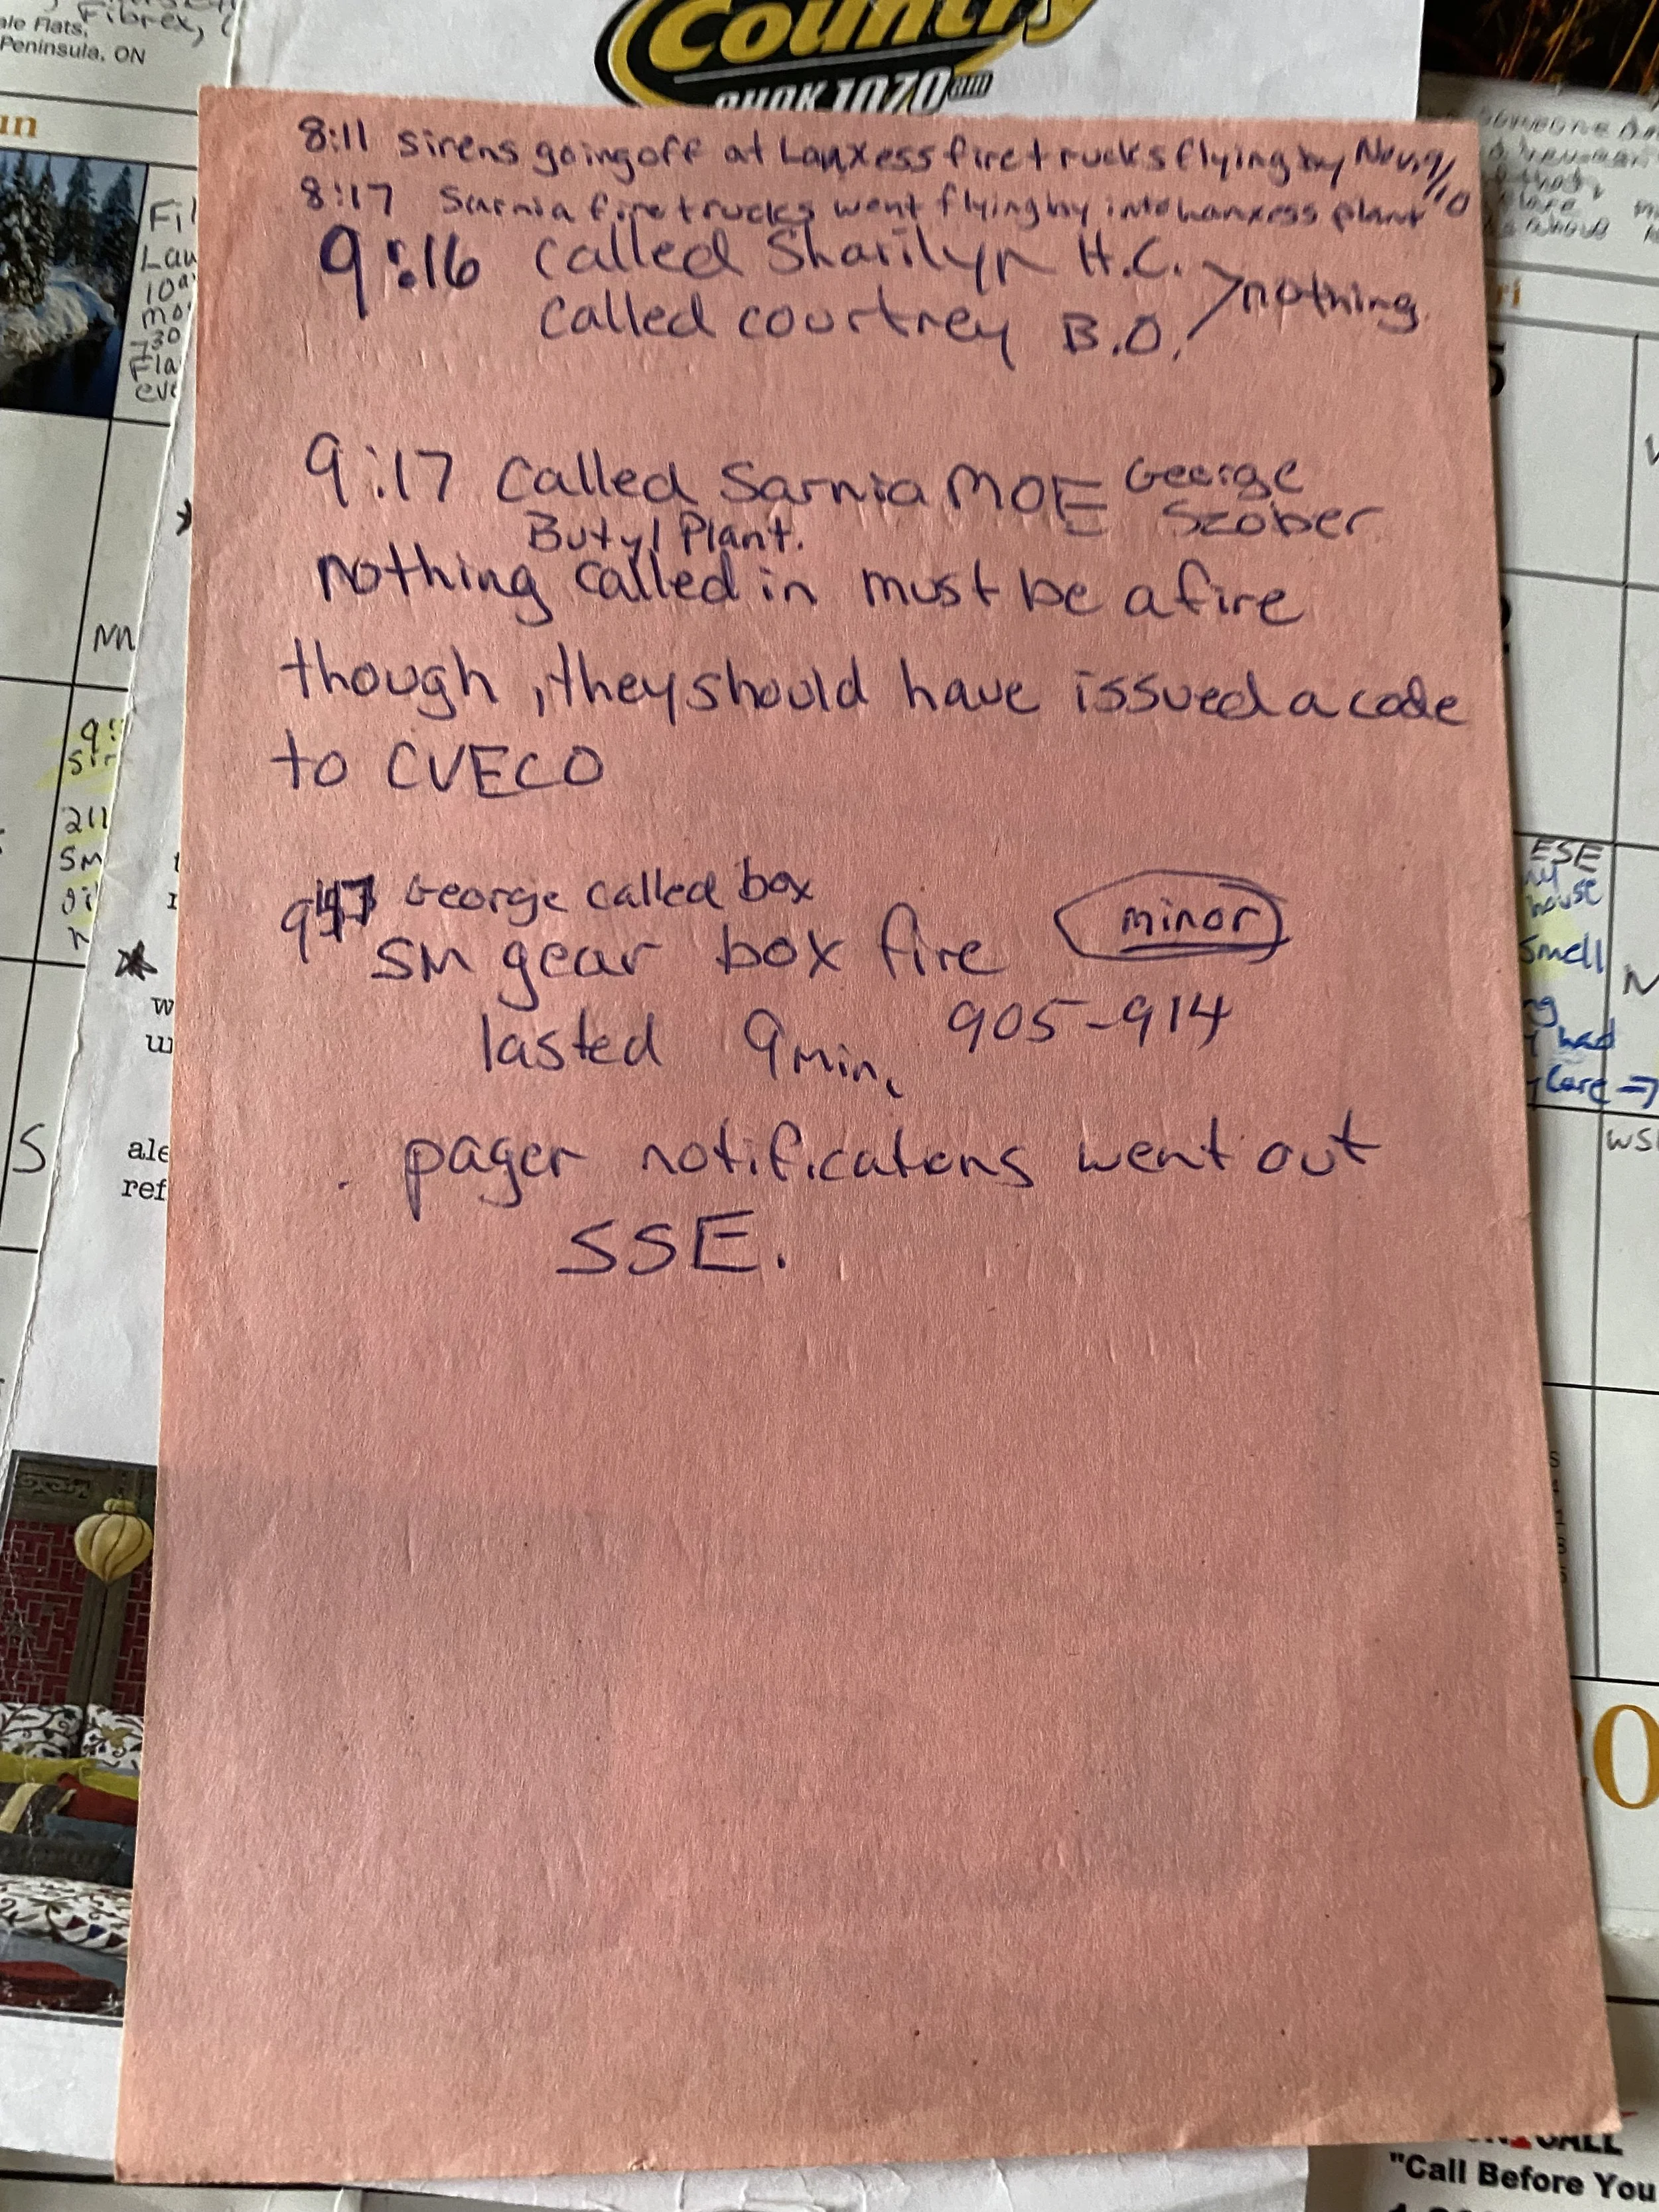 Fibrex,
ale Flats,
Peninsula, ON
Country
CHOK 1070 am
8:11 sirens going off at Lanxess fire trucks flying by Nov. 9/10
8:17 Sarnia fire trucks went flying by into Lanxess plant
9:16 called Sharilyn H.C. > nothing.
called courtney B.O.
9:17 called Sarnia MOE George Szober
Butyl Plant.
nothing called in must be a fire
though, they should have issued a code
to CVECO
George called box
SM gear box fire minor
lasted 9 min. 905-914
pager notificatons went out
SSE.
un
Fil
Lau
730
Fla
eve
NN
211
SM
S
ale
ref
ESE
house
Smell
had
Care →
WS
CALL
"Call Before You